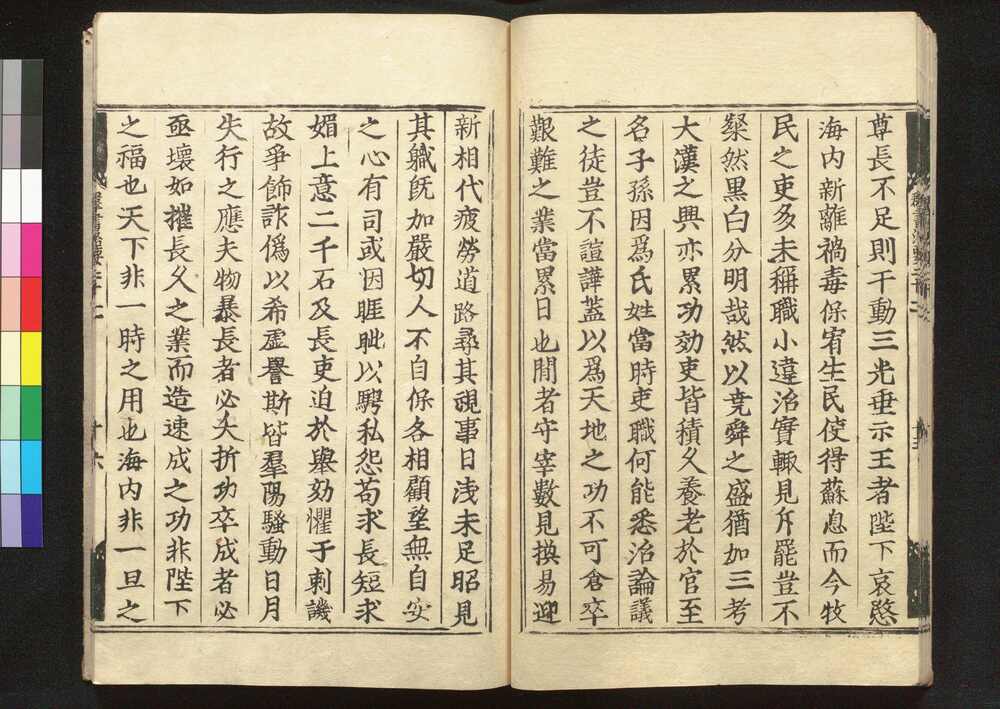 尊長不足則干動三光垂示王者陛下哀愍
海内新離禍毒保宥生民使得蘇息而今牧
民之吏多未稱職小違治實輙見斥罷豈不
粲然黑白分明哉然以堯舜之盛猶加三考
大漢之興亦累功効吏皆積久養老於官至
名子孫因爲氏姓當時吏職何能悉治論議
之徒豈不諠譁蓋以爲天地之功不可倉卒
艱難之業當累日也閒者守宰數見換易迎
新相代疲勞道路尋其視事日浅未足昭見
其軄旣加嚴切人不自保各相顧望無自安
之心有司或因睚眦以騁私怨苟求長短求
媚上意二千石及長吏迫於舉劾懼于刺譏
故爭飾詐僞以希虛譽斯皆羣陽騷動日月
失行之應夫物暴長者必夭折功卒成者必
亟壞如摧長久之業而造速成之功非陛下
之福也天下非一時之用也海内非一旦之